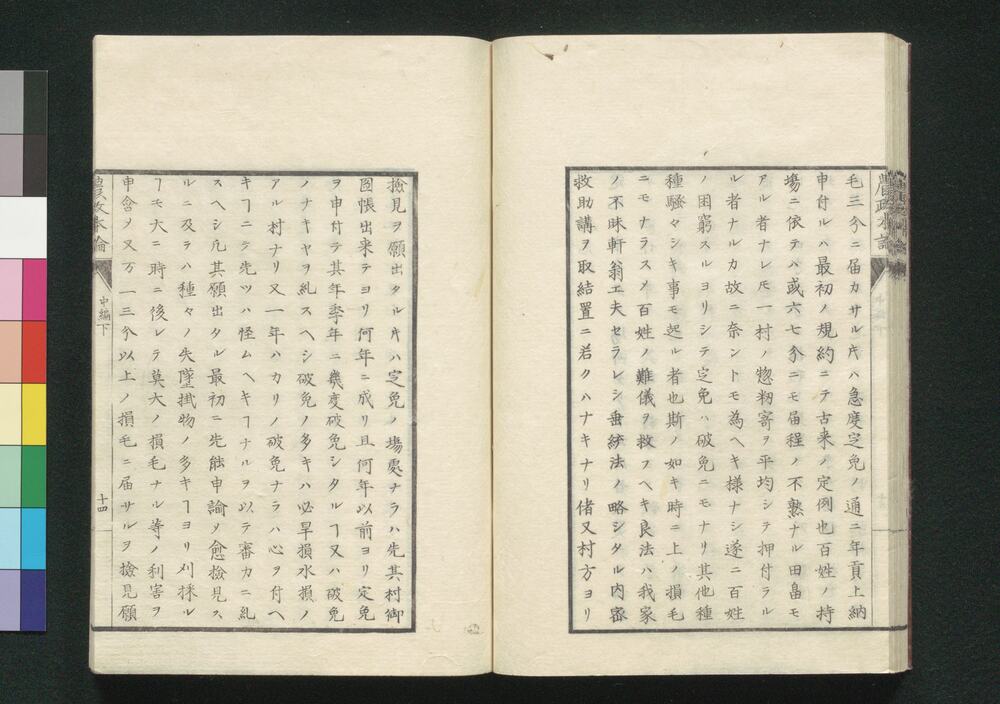 毛三分ニ届カサル片ハ急度定免ノ通ニ年貢上納
申付ルハ最初ノ規約ニテ古来ノ定例也百姓ノ持
場ニ依テハ或六七分ニモ届程ノ不熟ナル田畠モ
アル者ナレ𪜈一村ノ惣籾寄ヲ平均シテ押付ラル
ル者ナルカ故ニ奈ントモ為ヘキ様ナシ遂ニ百姓
ノ困窮スルヨリシテ定免ハ破免ニモナリ其他種
種騒々シキ事モ起ル者也斯ノ如キ時ニ上ノ損毛
ニモナラスメ百姓ノ難儀ヲ救フヘキ良法ハ我家
ノ不昧軒翁工夫セラレシ垂統法ノ略シタル内密
救助講ヲ取結置ニ若クハナキナリ偖又村方ヨリ
撿見ヲ願出タル片ハ定免ノ場處ナラハ先其村御
図帳出来テヨリ何年ニ成リ且何年以前ヨリ定免
ヲ申付テ其年季年ニ幾度破免シタルヿ又ハ破免
ノナキヤヲ糺スヘシ破免ノ多キハ必旱損水損ノ
アル村ナリ又一年ハカリノ破免ナラハ心ヲ付ヘ
キヿニテ先ツハ怪ムヘキヿナルヲ以テ審カニ糺
スヘシ凡其願出タル最初ニ先能申諭メ愈撿見ス
ルニ及ラハ種々ノ失墜掛物ノ多キヿヨリ刈採ル
ヿモ大ニ時ニ後レテ莫大ノ損毛ナル等ノ利害ヲ
申含ノ又万一三分以上ノ損毛ニ届サルヲ撿見願
農政本論
中編下
十四